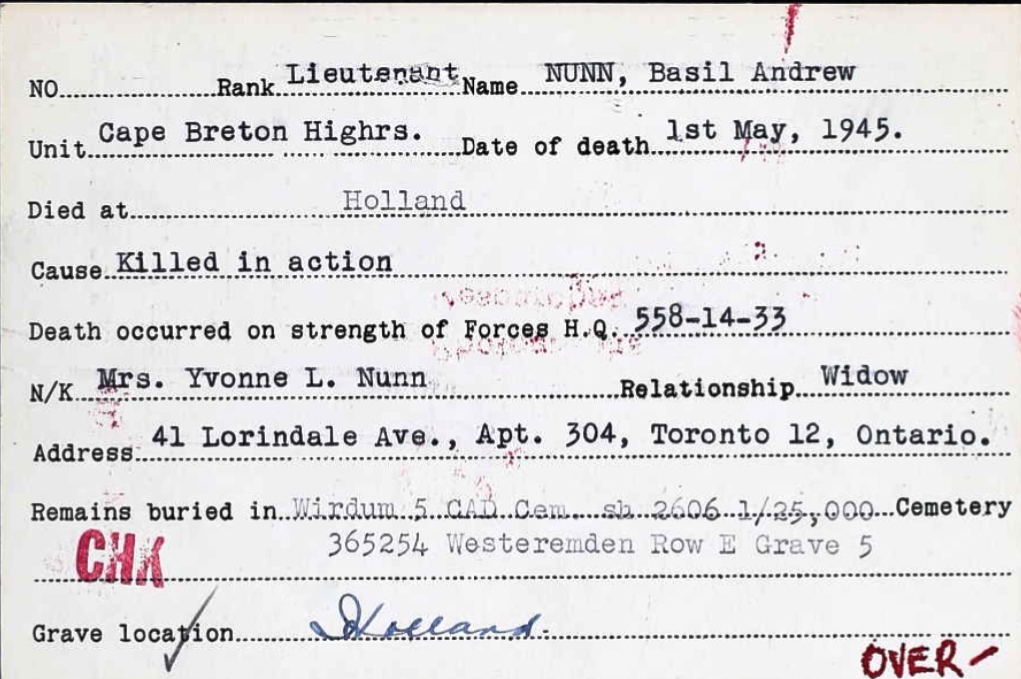 NO. Rank Lieutenant Name NUNN, Basil Andrew
Unit Cape Breton Highrs. Date of death 1st May, 1945.
Died at Holland
Cause Killed in action
Death occurred on strength of Forces H.Q. 558-14-33
N/K Mrs. Yvonne L. Nunn Relationship Widow
Address 41 Lorindale Ave., Apt. 304, Toronto 12, Ontario.
Remains buried in Wirdum 5 CAD Cem. sh 2606 1/25,000 Cemetery
CHK 365254 Westeremden Row E Grave 5
Grave location Holland.
OVER-